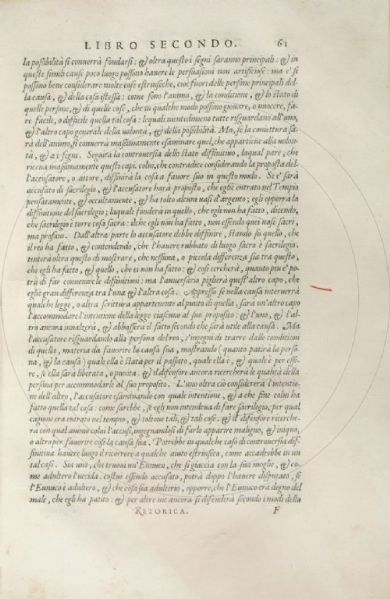 LIBRO SECONDO. 61
la possibilità si converrà fondarsi: & oltra questo i segni saranno principali: & in
queste simili cause poco luogo possono havere le persuasioni non artificiose: ma e' si
possono bene considerare molte cose estrinseche, cioè fuori delle persone principali del
la causa, & della cosa istessa: come sono l'animo, & la conditione, & lo stato di
quelle persone, & di quelle cose, che in qualche modo possono giovare, o nuocere,
fare facile, o difficile quella tal cosa: lequali ultimamente tutte risguardano all'uno,
& l'altro capo generali della volontà, & della possibilità. Ma, se la coniettura sa
rà dell'animo, si converrà massimamente esaminare quel, che appartiene alla volon
tà, & a i segni. Seguita la controversia dello stato diffinitivo, laqual pare, che
ricerca massimamente questo capo, che, contradice considerando la proposta del
l'accusatore, o attore, diffinirà la cosa a favore suo in questo modo. Se e' sarà
accusato di sacrilegio, & l'accusatore harà proposto, che egli è entrato nel Tempio
pensatamente, & occultamente, & ha tolto alcuni vasi d'argento; egli opporrà la
diffinitione del sacrilegio; laquale fonderà in quello, che egli non ha fatto, dicendo,
che sacrilegio è torre cosa sacra: di che egli non ha fatto, non essendo quei vasi sacri,
ma profani. Dall'altra parte lo accusatore debbe diffinire, stando su quello, che
il reo ha fatto, & contendendo, che l'havere rubbato di luogo sacro è sacrilegio.
tenterà oltra questo di mostrare, che nessuna, o piccola differenza sia tra questo,
che egli ha fatto, & quello, che ei non ha fatto: & così cercherà, quanto più e' po-
trà di far convenire le diffinitioni: ma l'avversario piglierà quest'altro capo, che
egli è gran differenza tra l'una & l'altra cosa. Appresso se nella causa interverrà
qualche legge, o altra scrittura appartenente al punto di quella, sarà un'altro capo
l'accommodare l'intentione della legge ciascuno al suo proposito: & l'uno, & l'al
tro ancora innalzerà, & abbasserà il fatto secondo che sarà utile alla causa. Ma
l'accusatore risguardando alla persona del reo, s'ingegni di trarre dalle conditioni
di quella, materia da favorire la causa sua, mostrando (quanto patirà la perso
na, & la causa) quale ella è stata per il passato, quale ella è, & quale è per esse-
re, se ella sarà liberata, o punita. & il difensore ancora ricercherà le qualità della
persona per accommodarle al suo proposito. L'uno oltra ciò considererà l'intentio
ne dell'altro, l'accusatore esaminando con quale intentione, & a che fine colui ha
fatto quella tal cosa: come sarebbe, se egli non intendeva di fare sacrilegio, per qual
cagione era entrato nel tempio, & toltone tali, & tali cose: & il difensore ricerche-
rà con qual animo colui l'accusi, ingegnandosi di farlo apparire maligno, & iniquo,
o altro per favorire così la causa sua. Potrebbe in qualche caso di controversia dif
finitiva havere luogo il ricorrere a qualche aiuto estrinseco, come accadrebbe in un
tal caso. Sia uno, che truova un'Eunuco, che si giaccia con la sua moglie, & co-
me adultero l'uccida. costui essendo accusato, potrà doppo l'havere disputato, se
l'Eunuco è adultero, & che cosa sia adulterio, opporre, che l'Eunuco era degno del
male, che egli ha patito: & per altre vie ancora si difenderà secondo i modi della
RETORICA. F